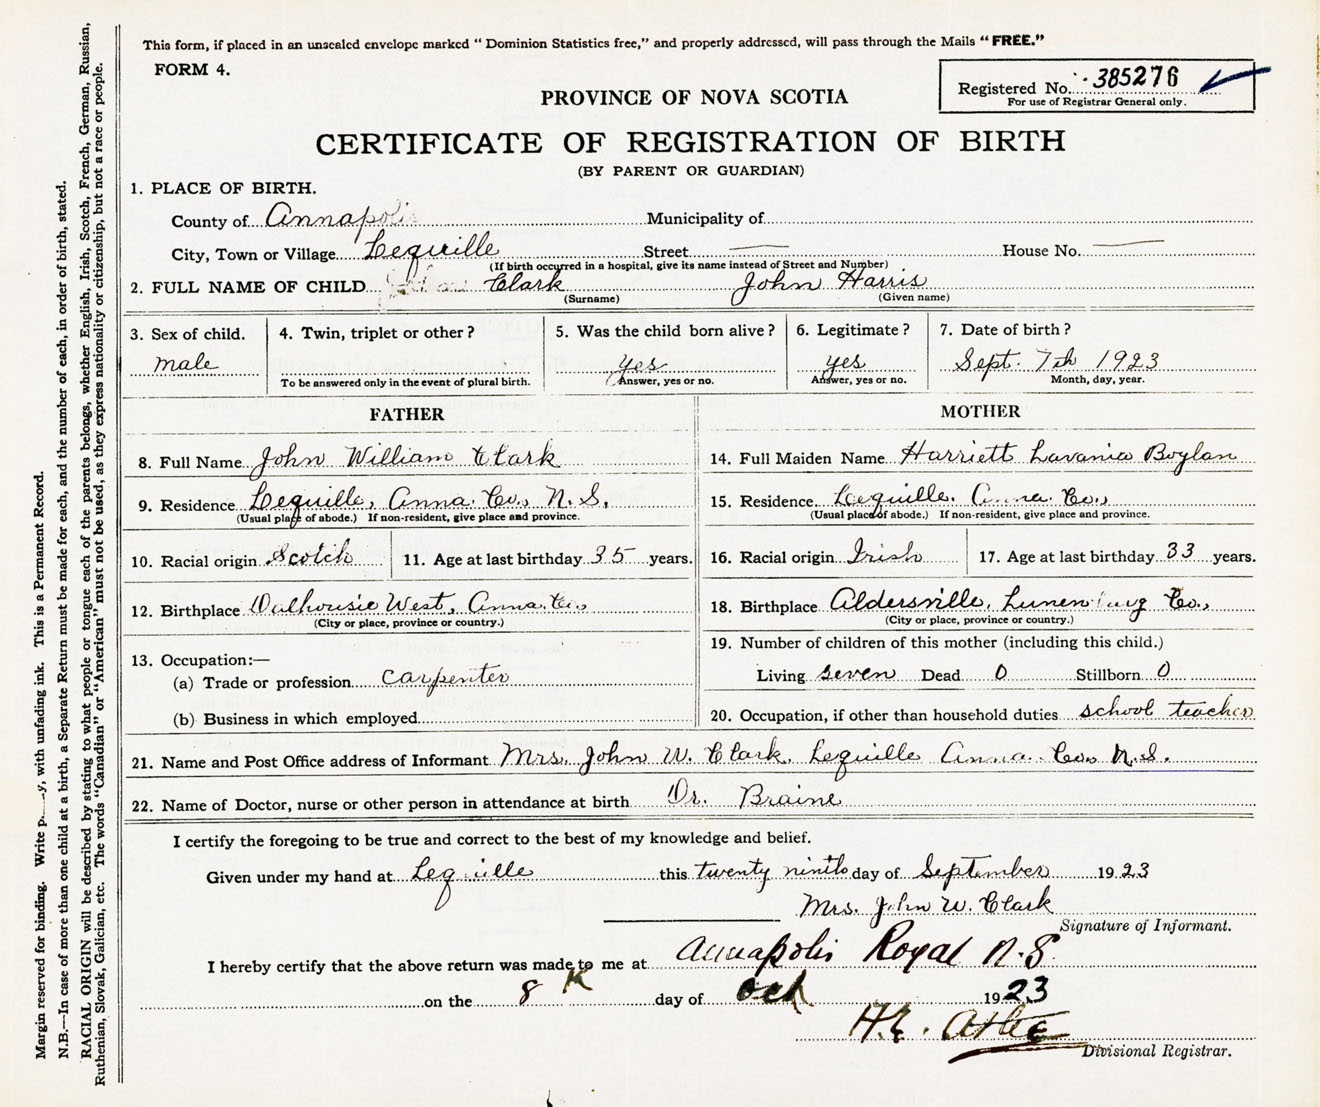 This form, if placed in an unsealed envelope marked “ Dominion Statistics free,” and properly addressed, will pass through the Mails “ FREE.”
FORM 4.
Registered No. 385276
For use of Registrar General only.
PROVINCE OF NOVA SCOTIA
CERTIFICATE OF REGISTRATION OF BIRTH
(BY PARENT OR GUARDIAN)
1. PLACE OF BIRTH.
County of Annapolis Municipality of
City, Town or Village Lequille Street House No.
(If birth occurred in a hospital, give its name instead of Street and Number)
2. FULL NAME OF CHILD Clark John Harris
(Surname) (Given name)
3. Sex of child. 4. Twin, triplet or other ? 5. Was the child born alive ? 6. Legitimate ? 7. Date of birth ?
male yes yes Sept. 7th 1923
To be answered only in the event of plural birth. Answer, yes or no. Answer, yes or no. Month, day, year.
FATHER MOTHER
8. Full Name John William Clark 14. Full Maiden Name Harriett Lavania Boylan
9. Residence Lequille, Anna. Co., N.S. 15. Residence Lequille. Anna. Co.,
(Usual place of abode.) If non-resident, give place and province. (Usual place of abode.) If non-resident, give place and province.
10. Racial origin Scotch 11. Age at last birthday 35 years. 16. Racial origin Irish 17. Age at last birthday 33 years.
12. Birthplace Dalhousie West, Anna. Co., 18. Birthplace Aldersville, Lunenburg Co.,
(City or place, province or country.) (City or place, province or country.)
19. Number of children of this mother (including this child.)
13. Occupation:—
(a) Trade or profession carpenter Living seven Dead 0 Stillborn 0
(b) Business in which employed 20. Occupation, if other than household duties school teacher
21. Name and Post Office address of Informant Mrs. John W. Clark, Lequille Anna. Co. N.S.
22. Name of Doctor, nurse or other person in attendance at birth Dr. Braine
I certify the foregoing to be true and correct to the best of my knowledge and belief.
Given under my hand at Lequille this twenty ninth day of September 1923
Mrs. John W. Clark
Signature of Informant.
I hereby certify that the above return was made to me at Annapolis Royal N.S.
on the 8th day of Oct 1923
H.E.
Divisional Registrar.
Margin reserved for binding. Write with unfading ink. This is a Permanent Record.
N.B.—In case of more than one child at a birth, a Separate Return must be made for each, and the number of each, in order of birth, stated.
RACIAL ORIGIN will be described by stating to what people or tongue each of the parents belongs, whether English, Irish, Scotch, French, German, Russian,
Ruthenian, Slovak, Galician, etc. The words “Canadian” or “American” must not be used, as they express nationality or citizenship, but not a race or people.